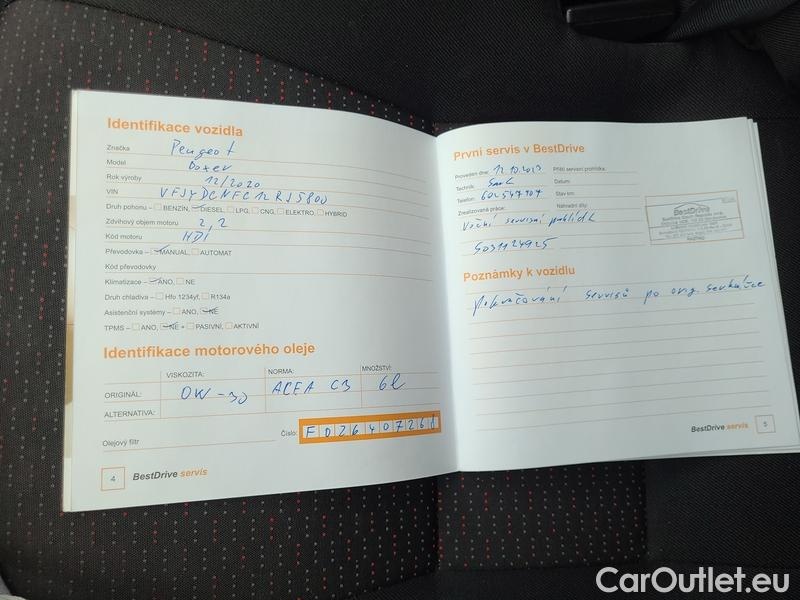 Identifikace vozidla
Značka Peugeot
Model Boxer
Rok výroby 12/2020
VIN
Druh pohonu – BENZÍN, DIESEL, LPG, CNG, ELEKTRO, HYBRID
Zdvihový objem motoru 2,2
Kód motoru HDI
Převodovka – MANUAL, AUTOMAT
Kód převodovky
Klimatizace – ANO, NE
Druh chladiva – Hfo 1234yf, R134a
Asistenční systémy – ANO, NE
TPMS – ANO, NE • PASIVNÍ, AKTIVNÍ
Identifikace motorového oleje
VISKOZITA: NORMA: MNOŽSTVÍ:
ORIGINÁL: 0W-30 ACEA C3 6l
ALTERNATIVA:
Olejový filtr Číslo: F026407268
4 BestDrive servis
První servis v BestDrive
Proveden dne: 12.10.2023 Příští servisní prohlídka:
Technik: Datum:
Telefon: 602547907 Stav km:
Zrealizovaná práce: Náhradní díly:
servisní
5031124925
BestDrive
Poznámky k vozidlu
Pokračování servisů po orig. servisce
BestDrive servis 5
CarOutlet.eu